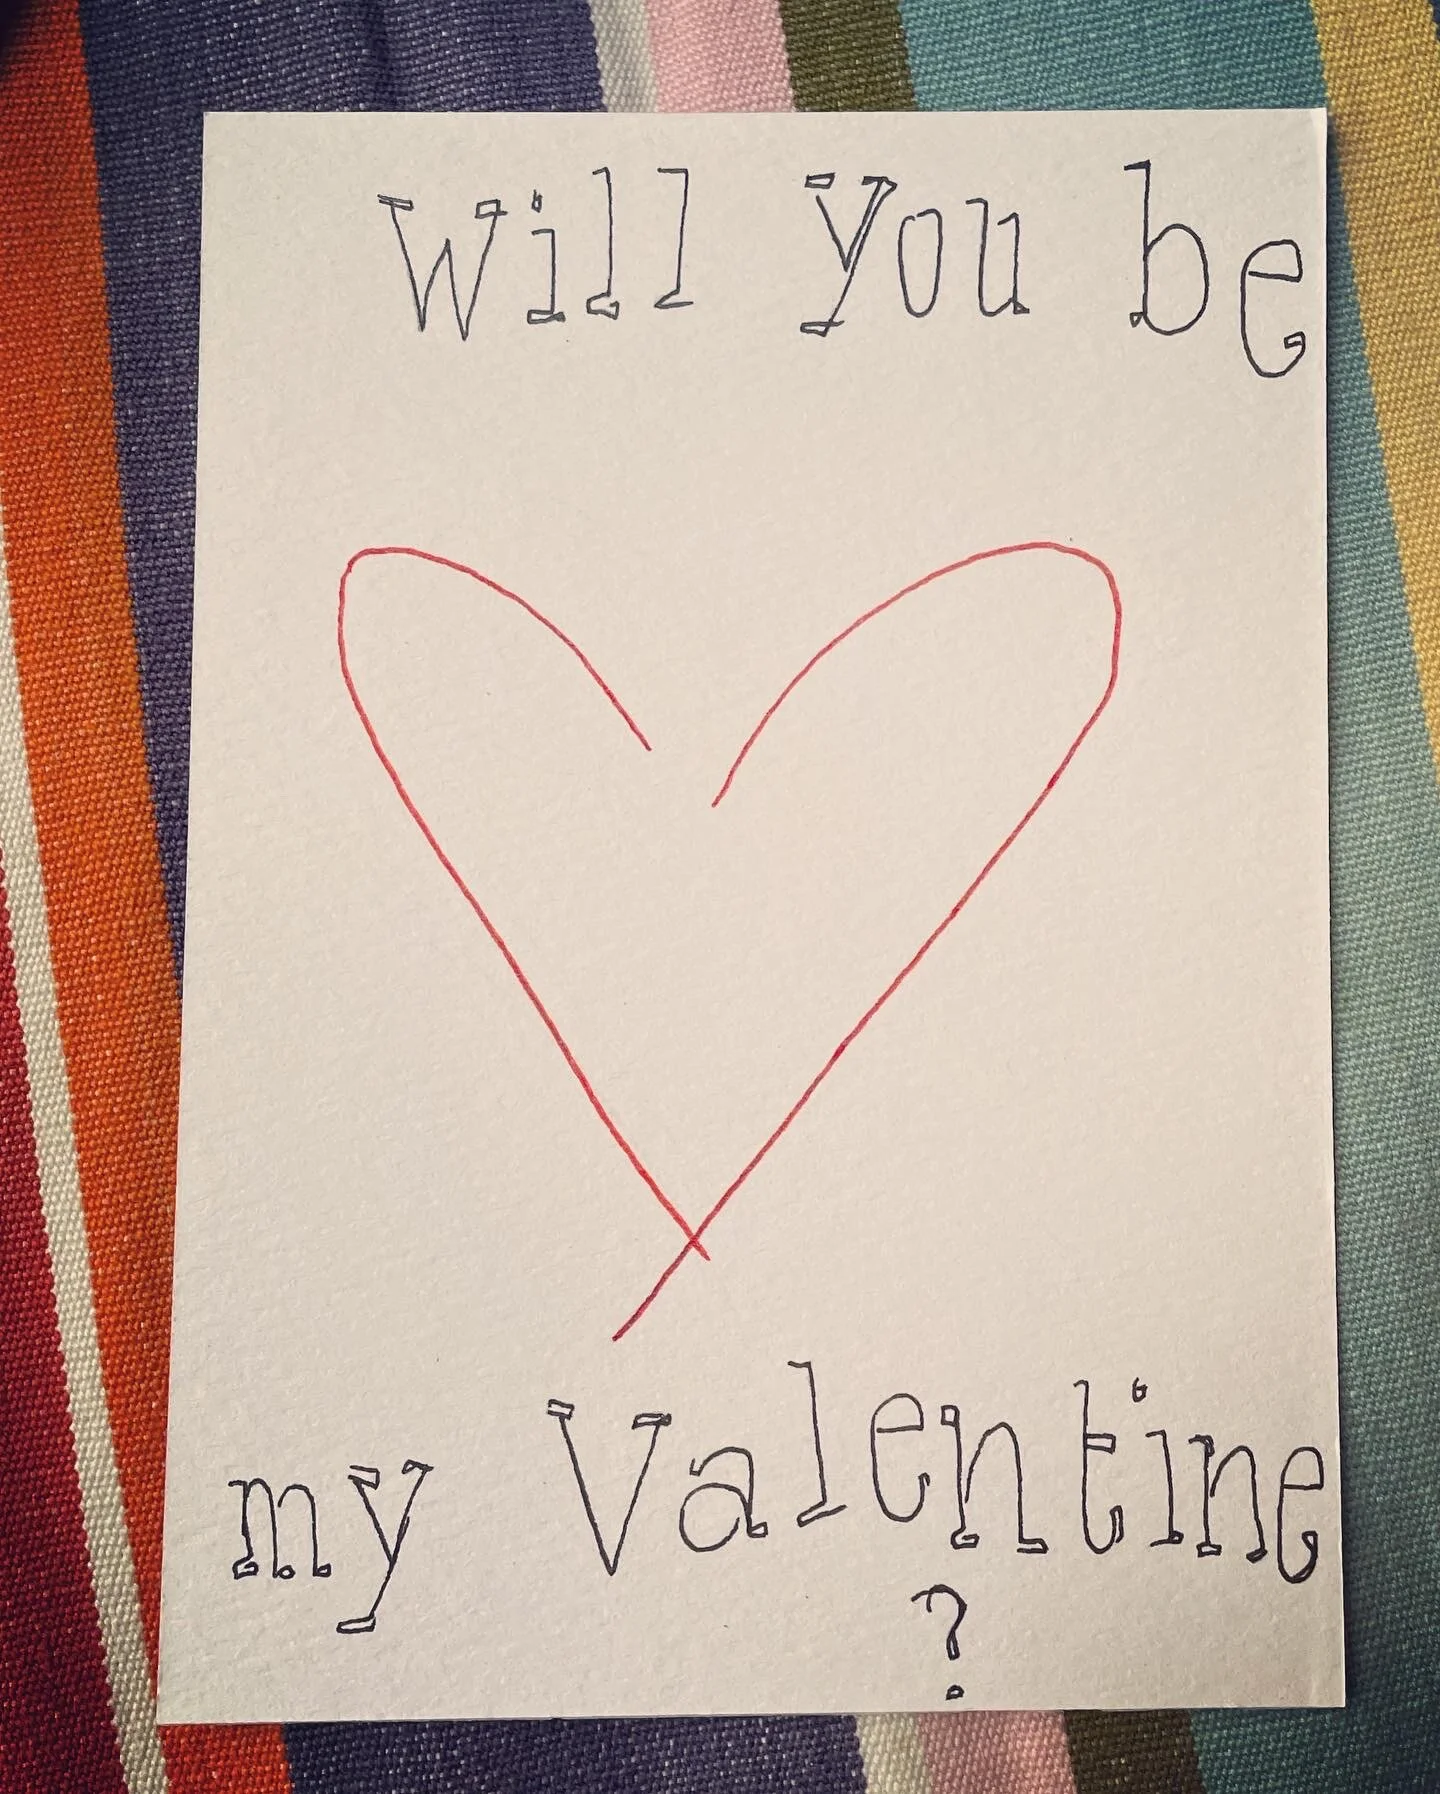 Will you be
my Valentine
?